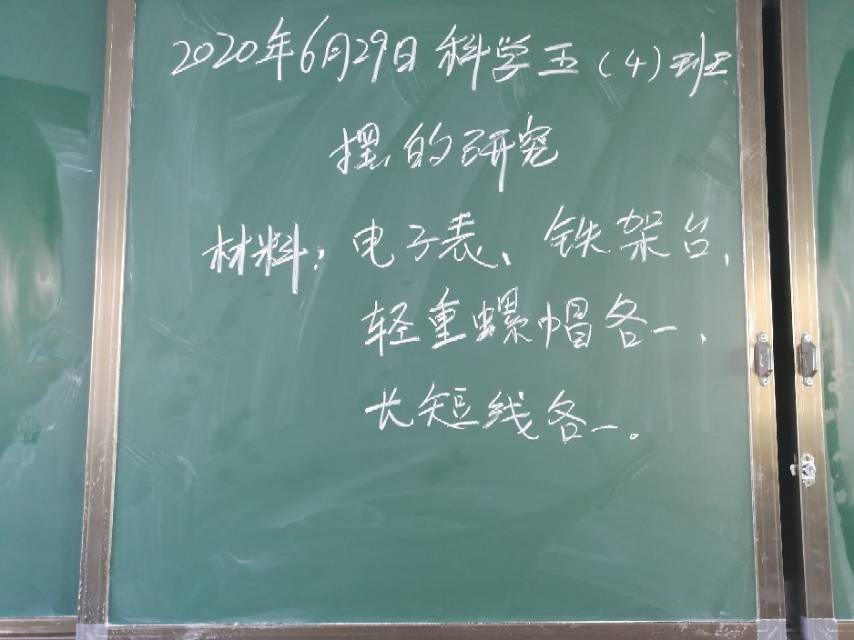 2020年6月29日科学五（4）班
摆的研究
材料：电子表、铁架台、
轻重螺帽各一、
长短线各一。